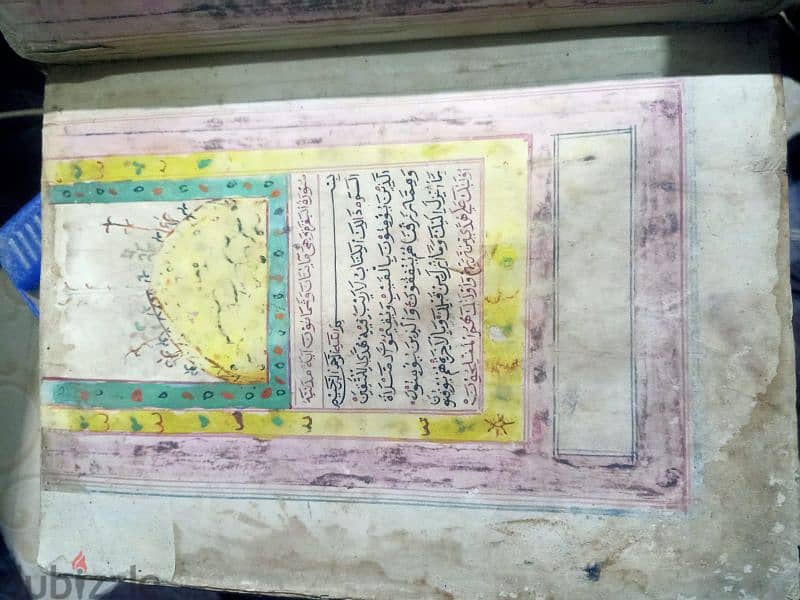 سورة البقره وهي مايتان وثمانون آية مدنية
بسم الله الرحمن الرحيم
الم ذَلِكَ الكِتَابُ لَارَيْبَ فِيهِ هُدًى لِلْمُتَّقِينَ
الَّذِينَ يُؤْمِنُونَ بِالْغَيْبِ وَيُقِيمُونَ الصَّلَاةَ
وَمِمَّا رَزَقْنَاهُمْ يُنْفِقُونَ وَالَّذِينَ يُؤْمِنُونَ
بِمَا أُنْزِلَ إِلَيْكَ وَمَا أُنْزِلَ مِنْ قَبْلِكَ وَبِالْآخِرَةِ هُمْ يُوقِنُونَ
أُولَئِكَ عَلَى هُدًى مِنْ رَبِّهِمْ وَأُولَئِكَ هُمُ الْمُفْلِحُونَ
dubizzle